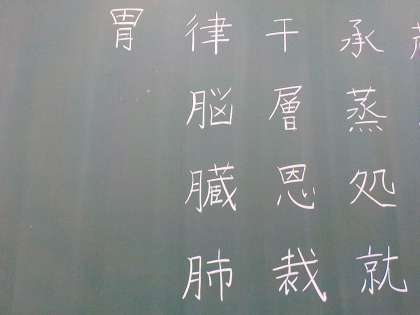 承蒸処就
干層恩裁
律脳臓肺
胃